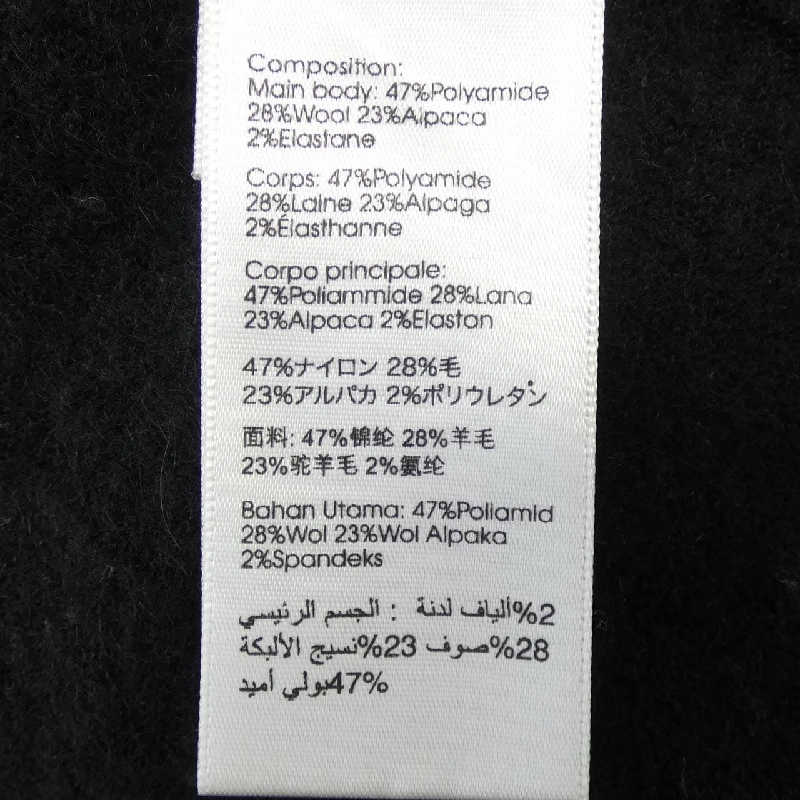 Composition:
Main body: 47%Polyamide
28%Wool 23%Alpaca
2%Elastane
Corps: 47%Polyamide
28%Laine 23%Alpaga
2%Élasthanne
Corpo principale:
47%Poliammide 28%Lana
23%Alpaca 2%Elaston
47%ナイロン 28%毛
23%アルパカ 2%ポリウレタン
面料: 47%锦纶 28%羊毛
23%驼羊毛 2%氨纶
Bahan Utama: 47%Poliamid
28%Wol 23%Wol Alpaka
2%Spandeks
الجسم الرئيسي : ألياف لدنة%2
28%صوف 23%نسيج الألبكة
47%بولي أميد